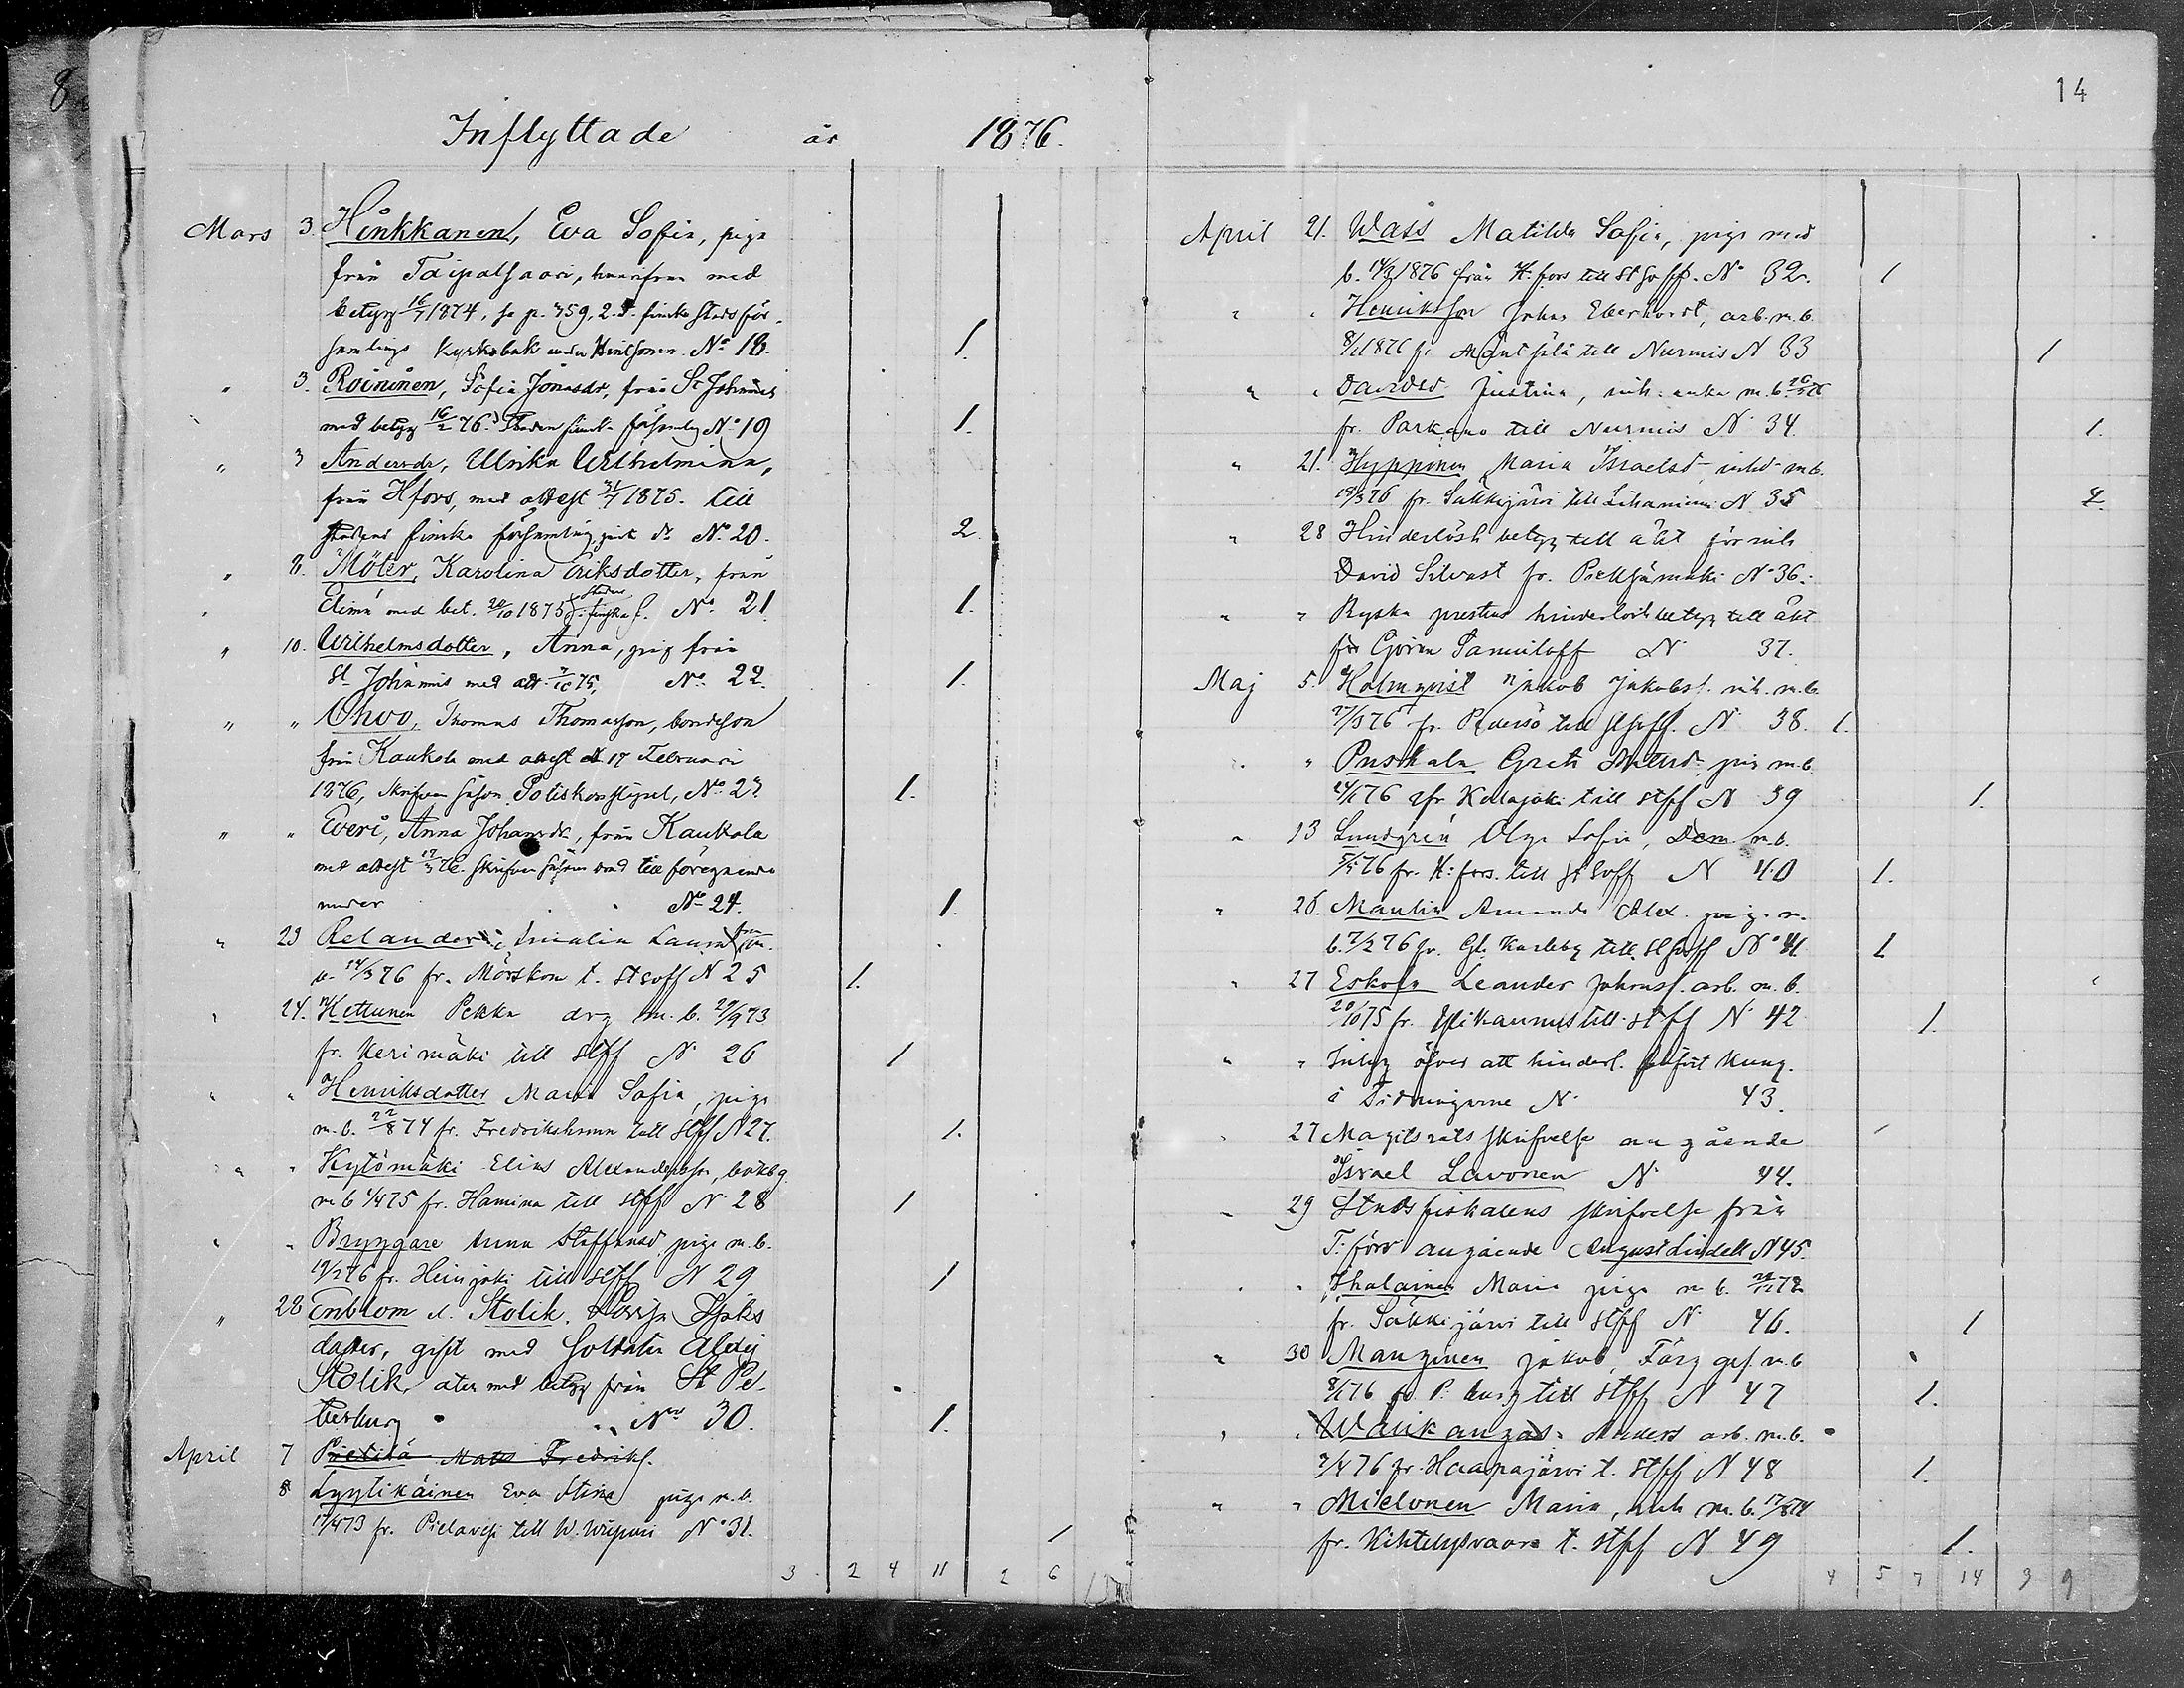 8
14
Inflyttade år 1876.
Mars 3. Hinkkanen, Eva Sofia, piga
från Taipalsaari, med
betyg 16/7 1874, se p. 759, 2. finska stadsför-
samlings kyrkobok under No 18. 1.
" 3. Roininen, Sofia Jonasdr, från St Johannes
med betyg 16/2 76. No 19 1.
" 3 Andersdr, Ulrika Wilhelmina,
från Hfors, med attest 31/7 1875. till
stadens finska församling, No 20. 2.
" 8. Möter, Karolina Eriksdotter, från
Elimä med bet. 20/10 1875 finska f. No 21. 1.
" 10. Wilhelmsdotter, Anna, piga från
St Johannis med att. 7/10 75, No 22. 1.
" " Ohvo, Thomas Thomasson, bondeson
från Kaukola med attest d 17 Februari
1876, No 23. 1.
" " Everi, Anna Johansdr, från Kaukola
med attest 17/2 76. till föregående
under No 24. 1.
" 23 Relander, Amalia Laura frn m.
b. 14/3 76 fr. Mörskom t. St soff N 25 1.
" 24. Kettunen Pekka drg m. b. 29/9 73
fr. Kerimäki till stff N 26 1
" " Henriksdotter Maria Sofia, piga
m. b. 22/8 74 fr. Fredrikshamn till stff N 27. 1.
" " Kytömäki Elias Alexandersson,
m b 1/4 75 fr. Hamina till stff N 28 1
" " Bryggare Anna Staffansd piga m. b.
19/2 76 fr. Heinjoki till stff N 29 1
" 28 Enblom d. Stolik,
dotter, gift med Soldaten Alexej
Stolik, åter med betyg från St Pe-
tersburg No 30. 1.
April 7 Pietilä Matts Fredriks.
8 Lyytikäinen Eva Stina piga m. b.
17/4 73 fr. Pielavesi till W. Wiipuri No 31. 1
3 2 4 11 2 6
April 21. Wass Matilda Sofia, piga med
b. 14/3 1876 från H.fors till St so ff. No 32. 1
" " Henriksson Johan Eberhard, arb. m. b.
8/1 1876 fr. Mäntsälä till Nurmis N 33 1
" " Davidsd Justina, enka m. b.
fr. Parkano till Nurmis N 34. 1.
" 21. Hyppönen Maria Israelsd m b.
18/3 76 fr. Säkkijärvi till N 35 2.
" 28 Hinderlösh betyg till äkt för
David Silvast fr. Pieksämäki No 36.
" " Ryska prestens hinderlösh betyg till äkt
för Göran Samuiloff N 37.
Maj 5. Holmqvist Jakob Jakobs. m. b.
27/3 76 fr. Pedersö till st soff. N 38. 1.
" Puskala Greta Mattsd. piga m. b.
24/1 76 fr. Kalajoki till stff N 39 1.
" 13 Lundgren Olga Sofia, Dem m. b.
5/5 76 fr. H: fors. till St soff N 40 1.
" 26. Maulin Amanda Alex. piga m.
b. 7/2 76 fr. Gl. Karleby till St soff No 41 1
" 27 Eskola Leander Johanss. arb. m. b.
20/10 75 fr. Ylikannus till stff N 42 1.
" " Intyg öfver att hinderl. kung.
i Tidningarne N 43.
" 27 Magistrats skrifvelse angående
Israel Lavonen N 44.
" 29 Stadsfiskalens skrifvelse från
T: fors angående August Lindell N 45.
" " Ihalainen Maria piga m b. 72
fr. Säkkijärvi till stff N 46. 1
" 30 Manginen Jakob, Färg ges. m. b
8/5 76 fr. P: burg till stff N 47 1.
" " Waukangas Anders arb. m. b.
7/4 76 fr. Haapajärvi t. stff N 48 1.
" " Mielonen Maria, m. b. 17/8 74
fr. Kihtelysvaara t. stff N 49 1.
4 5 7 14 3 9